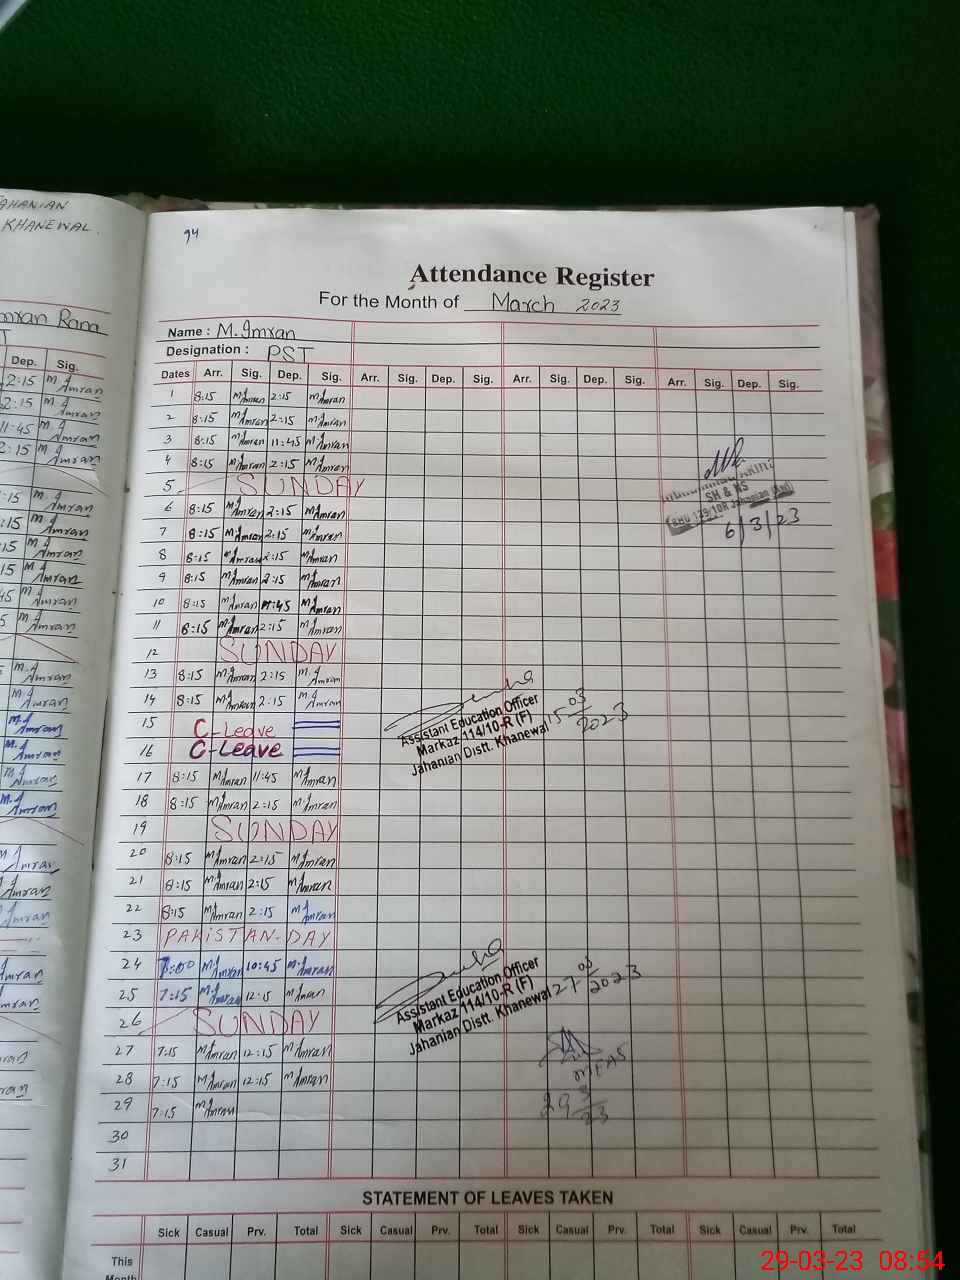 AHANIAN
KHANEWAL.
mran Rana
Dep. Sig.
2:15 M.Imran
2:15 M.Imran
11-45 M.Imran
2:15 M.Imran
94
Attendance Register
For the Month of March 2023
Name : M.Imran
Designation : PST
Dates Arr. Sig. Dep. Sig. Arr. Sig. Dep. Sig. Arr. Sig. Dep. Sig. Arr. Sig. Dep. Sig.
1 8:15 M.Imran 2:15 M.Imran
2 8:15 M.Imran 2:15 M.Imran
3 8:15 M.Imran 11:45 M.Imran
4 8:15 M.Imran 2:15 M.Imran
5 SUNDAY
6 8:15 M.Imran 2:15 M.Imran
7 8:15 M.Imran 2:15 M.Imran
8 8:15 M.Imran 2:15 M.Imran
9 8:15 M.Imran 2:15 M.Imran
10 8:15 M.Imran 11:45 M.Imran
11 8:15 M.Imran 2:15 M.Imran
12 SUNDAY
13 8:15 M.Imran 2:15 M.Imran
14 8:15 M.Imran 2:15 M.Imran
15 C-Leave
16 C-Leave
17 8:15 M.Imran 11:45 M.Imran
18 8:15 M.Imran 2:15 M.Imran
19 SUNDAY
20 8:15 M.Imran 2:15 M.Imran
21 8:15 M.Imran 2:15 M.Imran
22 8:15 M.Imran 2:15 M.Imran
23 PAKISTAN-DAY
24 7:00 M.Imran 10:45 M.Imran
25 7:15 M.Imran 12:15 M.Imran
26 SUNDAY
27 7:15 M.Imran 12:15 M.Imran
28 7:15 M.Imran 12:15 M.Imran
29 7:15 M.Imran
30
31
SH & NS
BHU 129/10R Jahanian
6/3/23
Assistant Education Officer
Markaz 114/10-R (F)
Jahanian Distt. Khanewal
15 03/2023
Assistant Education Officer
Markaz 114/10-R (F)
Jahanian Distt. Khanewal
27 03/2023
MEAS
29 3/23
STATEMENT OF LEAVES TAKEN
Sick Casual Prv. Total Sick Casual Prv. Total Sick Casual Prv. Total Sick Casual Prv. Total
This
Month
29-03-23 08:54